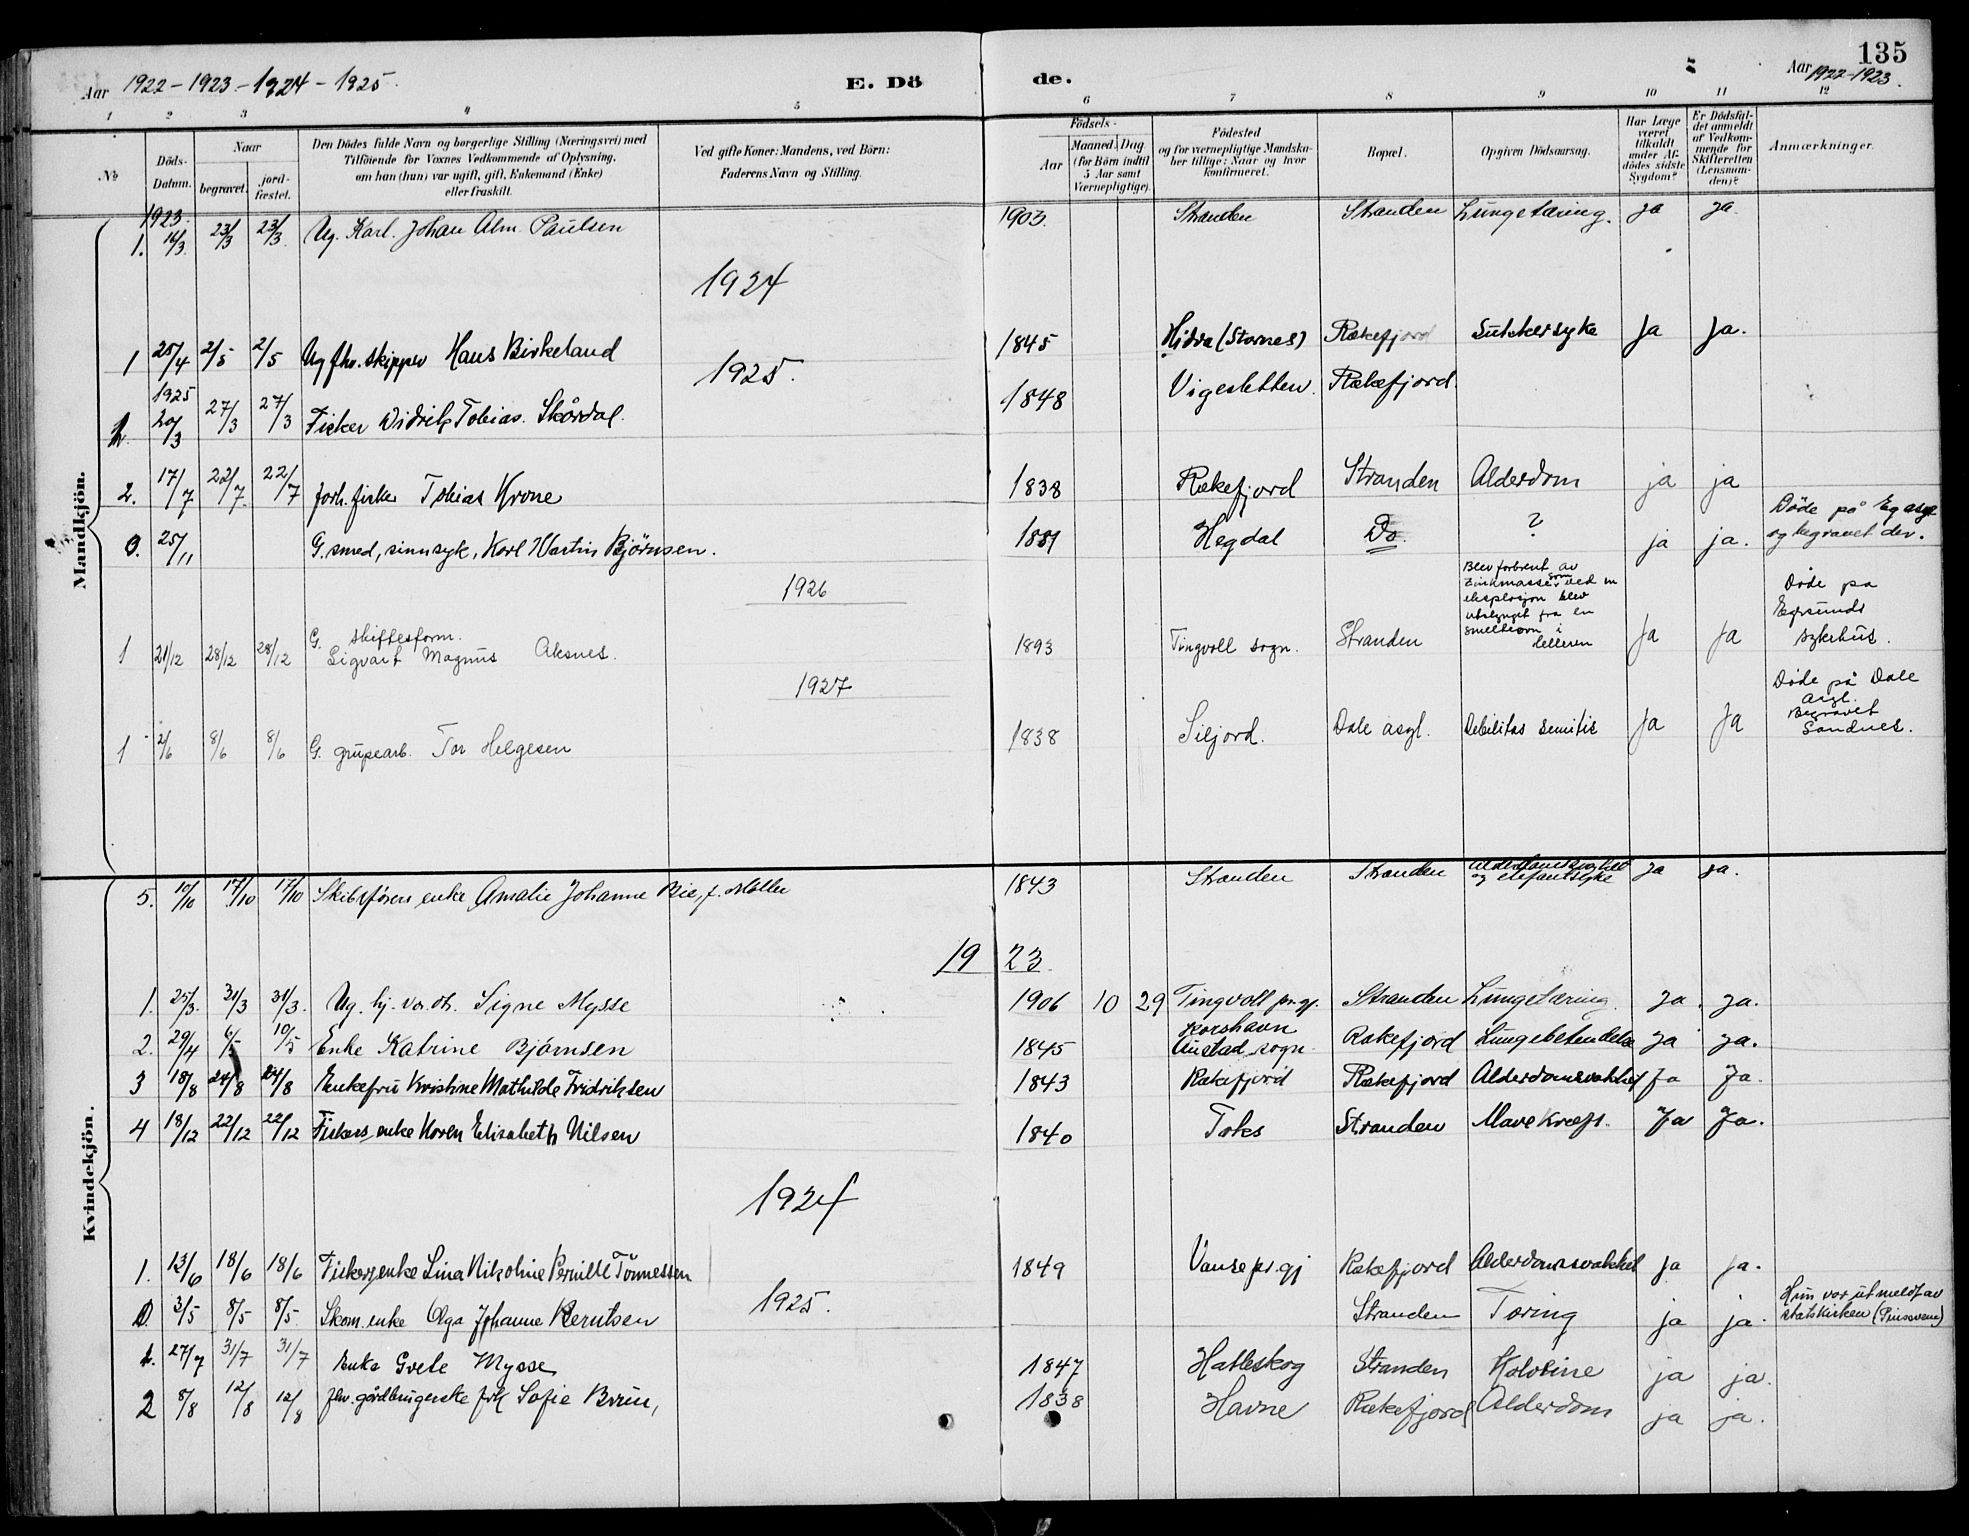 135
Aar 1922 - 1923 - 1924 - 1925.
E. Dö de.
Aar 1922-1923.
1 2 3 4 5 6 7 8 9 10 11 12
No
Döds-Datum.
Naar
begravet.
jord-fæstet.
Den Dödes fulde Navn og borgerlige Stilling (Næringsvei) med
Tilföiende for Voxnes Vedkommende af Oplysning,
om han (hun) var ugift, gift, Enkemand (Enke)
eller fraskilt.
Ved gifte Koner: Mandens, ved Börn:
Faderens Navn og Stilling.
Födsels-
Aar
Maaned. Dag.
(for Börn indtil
5 Aar samt
Værnepligtige).
Födested
og for værnepligtige Mandska-
ber tillige: Naar og hvor
konfirmeret.
Bopæl.
Opgiven Dödsaarsag.
Har Læge
været
tilkaldt
under Af-
dödes sidste
Sygdom?
Er Dödsfal-
det anmeldt
af Vedkom-
mende for
Skifteretten
(Lensman-
den)?
Anmærkninger.
Mandkjön.
1923.
1. 16/3 23/3 23/3 Ug. Karl. Johan Alm. Paulsen 1903. Stranden Stranden Lungetæring. ja ja.
1924
1 25/4 2/5 2/5 Ug fhv. skipper Hans Birkeland 1845 Hidra (Stornes) Rækefjord Sukkersyke Ja Ja.
1925.
1925
1. 20/3 27/3 27/3 Fisker Didrik Tobias. Skårdal. 1848 Vigesletten. Rækefjord.
2. 17/7 22/7. 22/7 forh. fisker Tobias Krone 1838 Rækefjord Stranden Alderdom ja ja
0. 25/11 G. smed, sinnsyk, Karl Martin Bjørnsen. 1881 Hegdal Do. ? ja ja. Døde på Eg asyl
og begravet der.
1926
1 21/12 28/12 28/12 G. skiftesform.
Sigvart Magnus Aksnes. 1893 Tingvoll sogn. Stranden Blev forbrent av
zinkmasse som ved en
eksplosjon blev
utslynget fra en
smelteovn i
Helleren Ja Ja Døde på
Egersunds
sykehus.
1927
1 2/6 8/6 8/6 G. grupearb. Tor Helgesen 1838 Siljord. Dale asyl. Debilitas senilis Ja Ja Døde på Dale
Asyl.
Begravet
Sandnes.
Kvindekjön.
5. 10/10 17/10 17/10 Skibsførers enke Amalie Johanne Bie, f. Møller 1843 Stranden Stranden Alderdomssvakhet
og elefantsyke ja ja.
1923.
1. 25/3. 31/3 31/3. Ug. hj. vær. dt. Signe Mysse 1906 10 29 Tingvoll pr.gj. Stranden Lungetæring. ja. ja.
2. 29/4 6/5 10/5 Enke Katrine Bjørnsen 1845 Korshavn
Austad sogn Rækefjord Lungebetendelse ja ja.
3 18/8 24/8 24/8 Enkefru Kristine Mathilde Fridriksen 1843 Rækefjord Rækefjord Alderdomssvakhet Ja Ja.
4 18/12 22/12 22/12 Fiskers enke Karen Elisabeth Nilsen 1840 Toks Stranden Mavekræft. Ja Ja.
1924
1. 13/6 18/6 18/6 Fiskerenke Lina Nikoline Pernille Tönnessen 1849 Vanse pr. gj Rækefjord Alderdomssvakhet Ja ja.
1925.
0. 3/5 8/5 8/5. Skom. enke Olga Johanne Berntsen Stranden Tæring ja ja. Hun var utmeldt av
statskirken (Pinsevenn)
1. 27/7 31/7 31/7 Enke Grete Mysse 1847 Hatleskog Stranden Kolerine ja ja.
2 8/8 12/8 12/8 fhv. gårdbrugerske frk Sofie Bruun, 1838 Havne Rækefjord Alderdom ja ja.